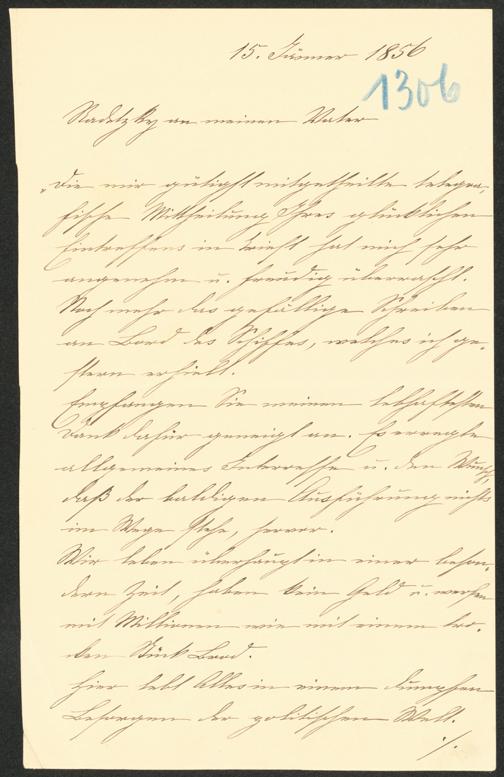 15. Jänner 1856
1306
Radetzky an meinen Vater
„Die mir gütigst mitgetheilte telegra-
fische Mittheilung Ihres glücklichen
Eintreffens in Triest hat mich sehr
angenehm u. freudig überrascht.
Noch mehr das gefällige Schreiben
an Bord des Schiffes, welches ich ge-
stern erhielt.
Empfangen Sie meinen lebhaftesten
Dank dafür geneigt an. Es erregte
allgemeines Interesse u. den Wunsch,
daß der baldigen Ausführung nichts
im Wege stehe, hervor.
Wir leben überhaupt in einer beson-
dern Zeit, haben kein Geld u. werfen
mit Millionen wie mit einem tro-
ken Stück Brod.
Hier lebt Alles in einem dumpfen
Besorgen der politischen Welt.
./.